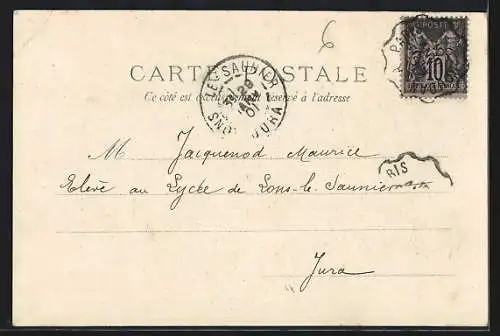 6
CARTE POSTALE
Ce côté est exclusivement réservé à l'adresse
LONS-LE-SAUNIER
28
01
JURA
POSTE
10
M Jacquenod Maurice
Elève au Lycée de Lons-le-Saunier
RIS
Jura